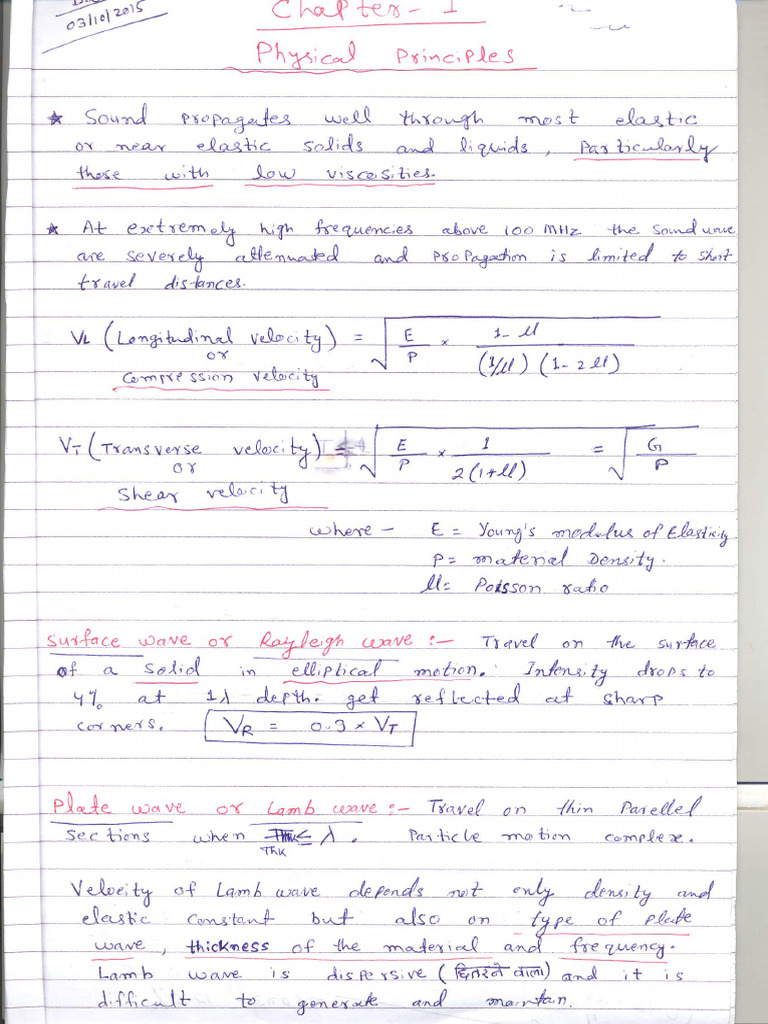 03/10/2015
Chapter - 1
Physical Principles
* Sound propagates well through most elastic
or near elastic solids and liquids, Particularly
those with low viscosities.
* At extremely high frequencies above 100 MHz the sound wave
are severely attenuated and propagation is limited to short
travel distances.
VL (Longitudinal velocity) = √(E/P × (1-μ)/((1/μ)(1-2μ)))
or
compression velocity
VT (Transverse velocity) = √(E/P × 1/(2(1+μ))) = √(G/P)
or
Shear velocity
where - E = Young's modulus of Elasticity
P = material Density.
μ = Poisson ratio
Surface wave or Rayleigh wave :- Travel on the surface
of a solid in elliptical motion. Intensity drops to
4% at 1λ depth. get reflected at sharp
corners. VR = 0.3 × VT
Plate wave or Lamb wave :- Travel on thin Parellel
sections when ≤ λ. Particle motion complex.
Thk
Velocity of Lamb wave depends not only density and
elastic constant but also on type of plate
wave, thickness of the material and frequency.
Lamb wave is dispersive (छितरने वाला) and it is
difficult to generate and maintain.